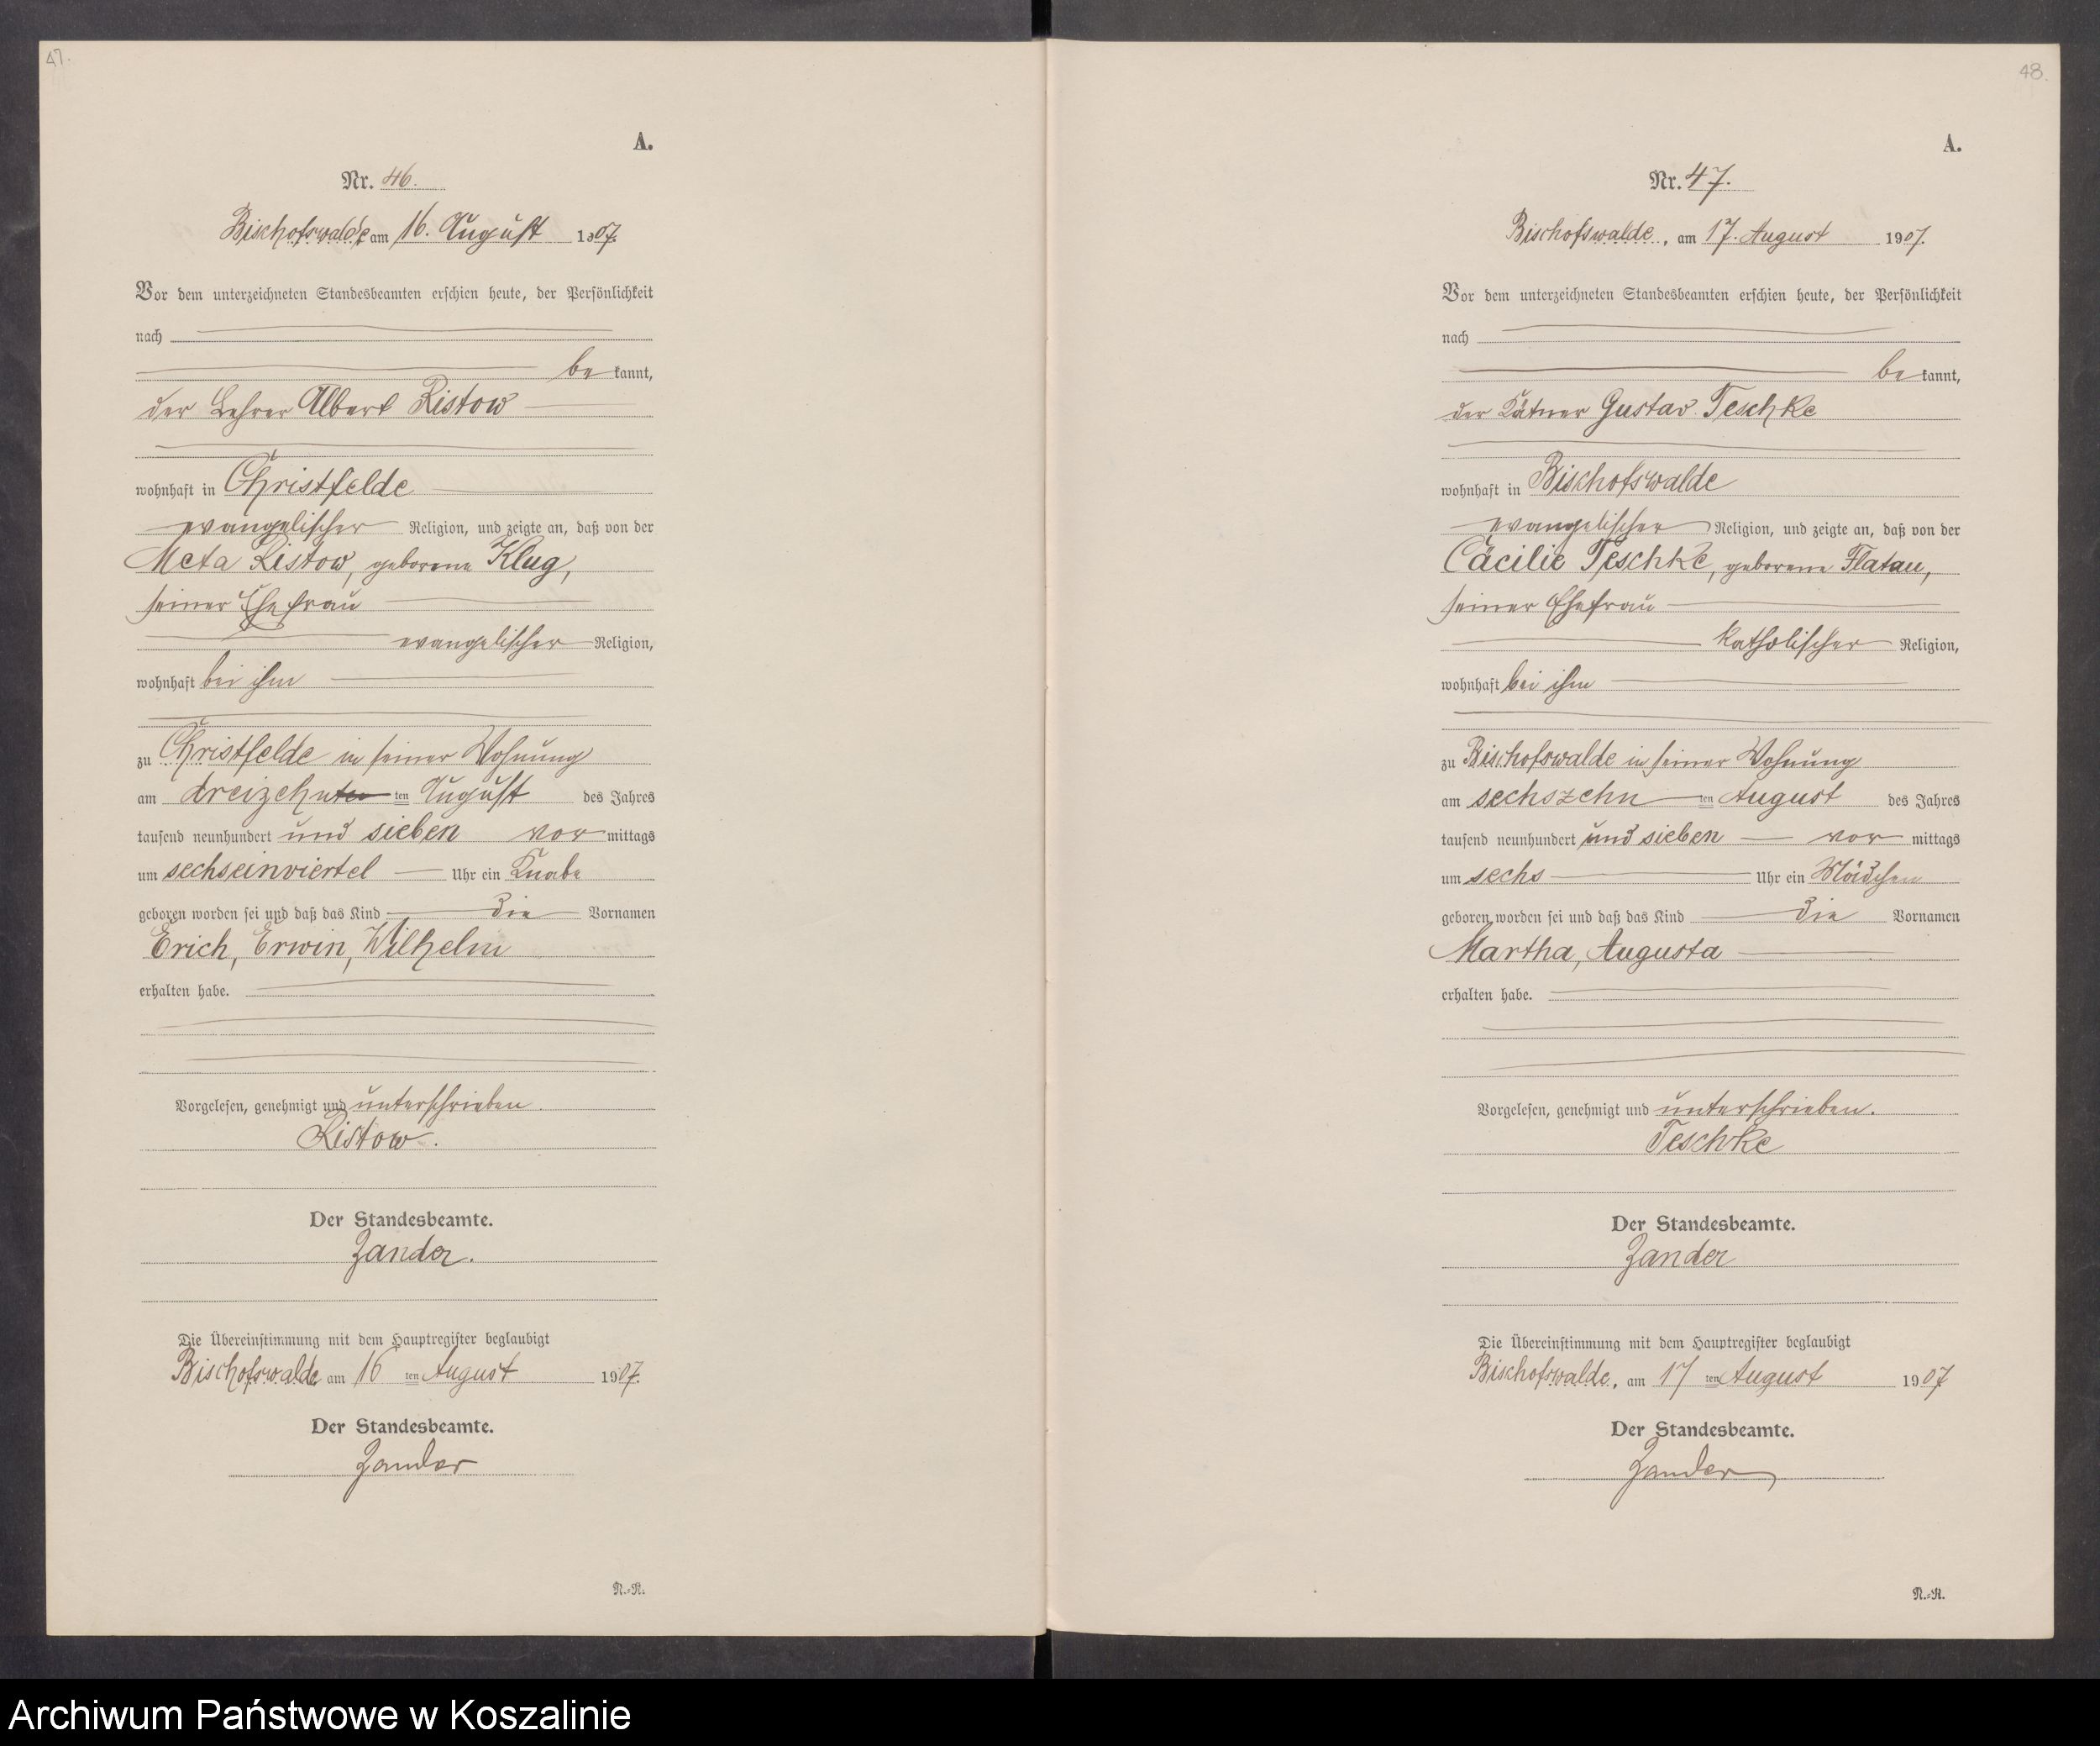 47.
A.
Nr. 46.
Bischofswalde am 16. August 1907.
Vor dem unterzeichneten Standesbeamten erschien heute, der Persönlichkeit
nach
be kannt,
der Lehrer Albert Ristow
wohnhaft in Christfelde
evangelischer Religion, und zeigte an, daß von der
Meta Ristow, geborene Klug,
seiner Ehefrau
evangelischer Religion,
wohnhaft bei ihm
zu Christfelde in seiner Wohnung
am dreizehnten ten August des Jahres
tausend neunhundert und sieben vor mittags
um sechseinviertel Uhr ein Knabe
geboren worden sei und daß das Kind die Vornamen
Erich, Erwin, Wilhelm
erhalten habe.
Vorgelesen, genehmigt und unterschrieben.
Ristow.
Der Standesbeamte.
Zander.
Die Übereinstimmung mit dem Hauptregister beglaubigt
Bischofswalde am 16 ten August 1907.
Der Standesbeamte.
Zander
N.-R.
48.
A.
Nr. 47.
Bischofswalde, am 17. August 1907.
Vor dem unterzeichneten Standesbeamten erschien heute, der Persönlichkeit
nach
be kannt,
der Kätner Gustav Teschke
wohnhaft in Bischofswalde
evangelischer Religion, und zeigte an, daß von der
Cäcilie Teschke, geborene Flatau,
seiner Ehefrau
katholischer Religion,
wohnhaft bei ihm
zu Bischofswalde in seiner Wohnung
am sechszehn ten August des Jahres
tausend neunhundert und sieben vor mittags
um sechs Uhr ein Mädchen
geboren worden sei und daß das Kind die Vornamen
Martha, Augusta
erhalten habe.
Vorgelesen, genehmigt und unterschrieben.
Teschke
Der Standesbeamte.
Zander
Die Übereinstimmung mit dem Hauptregister beglaubigt
Bischofswalde, am 17 ten August 1907
Der Standesbeamte.
Zander
N.-R.
Archiwum Państwowe w Koszalinie